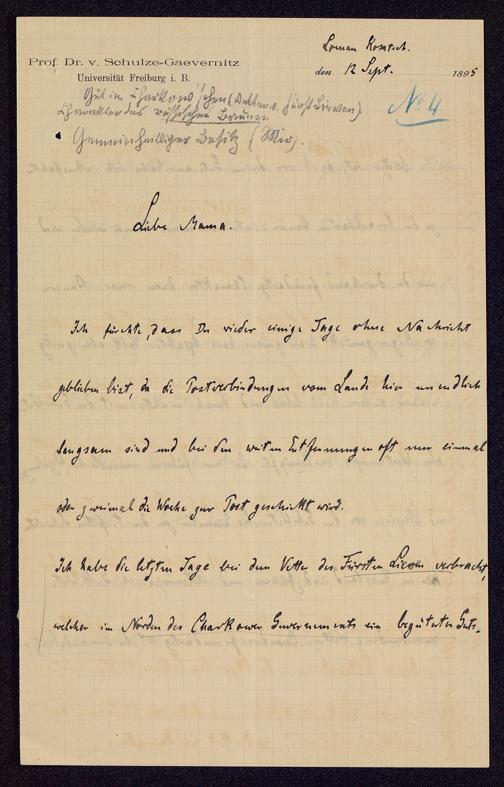 Prof. Dr. v. Schulze-Gaevernitz
Universität Freiburg i. B.
den 12 Sept. 1895
No 4
Gut im Charkow'schen (Vetter v. Fürst Liewen)
Charakter des russischen Bauern
Gemeinheitlicher Besitz (Mir).
Liebe Mama.
Ich fürchte, dass Du wieder einige Tage ohne Nachricht
geblieben bist, da die Postverbindungen vom Lande hier unendlich
langsam sind und bei den weiten Entfernungen oft nur einmal
oder zweimal die Woche zur Post geschickt wird.
Ich habe die letzten Tage bei dem Vetter des Fürsten Liewen verbracht,
welcher im Norden des Charkower Gouvernements ein begüterter Guts-